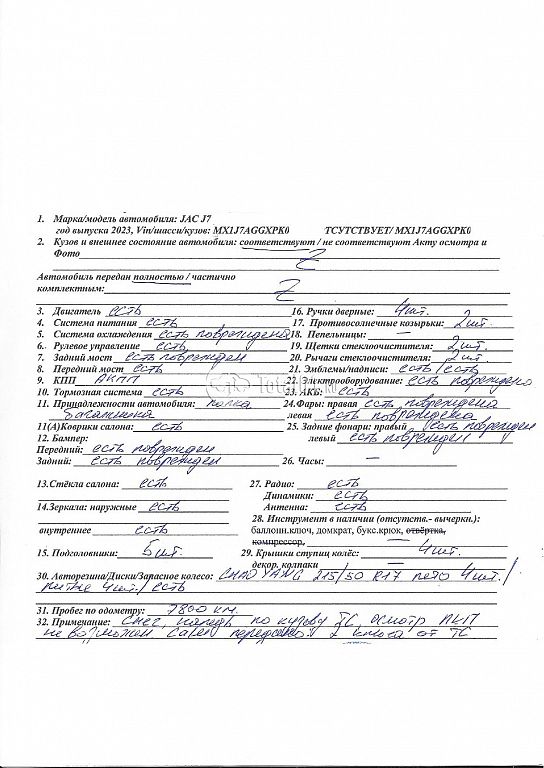 1. Марка/модель автомобиля: JAC J7
год выпуска 2023, Vin/шасси/кузов: MX1J7AGGXPK0 ТСУТСТВУЕТ/ MX1J7AGGXPK0
2. Кузов и внешнее состояние автомобиля: соответствуют / не соответствуют Акту осмотра и
Фото Z
Автомобиль передан полностью / частично
комплектным: Z
3. Двигатель есть 16. Ручки дверные: 4 шт.
4. Система питания есть 17. Противосолнечные козырьки: 2 шт.
5. Система охлаждения есть повреждена 18. Пепельницы: —
6. Рулевое управление есть 19. Щетки стеклоочистителя: 2 шт.
7. Задний мост есть поврежден 20. Рычаги стеклоочистителя: 2 шт
8. Передний мост есть 21. Эмблемы/надписи: есть/есть
9. КПП АКПП 22. Электрооборудование: есть повреждено
10. Тормозная система есть 23. АКБ: есть
11. Принадлежности автомобиля: полка 24. Фары: правая есть повреждена
багажника левая есть повреждена
11(А)Коврики салона: есть 25. Задние фонари: правый есть поврежден
12. Бампер: левый есть поврежден
Передний: есть поврежден
Задний: есть поврежден 26. Часы: —
13.Стёкла салона: есть 27. Радио: есть
Динамики: есть
14.Зеркала: наружные есть Антенна: есть
28. Инструмент в наличии (отсутств.- вычеркн.):
внутреннее есть баллонн.ключ, домкрат, букс.крюк, отвёртка,
компрессор, —
15. Подголовники: 5 шт. 29. Крышки ступиц колёс: 4 шт.
декор. колпаки —
30. Авторезина/Диски/Запасное колесо: CHAOYANG 215/50 R17 лето 4 шт./
литые 4 шт./ есть
31. Пробег по одометру: 7800 км.
32. Примечание: Снег, наледь по кузову ТС, осмотр ЛКП
не возможен 2 ключа от ТС